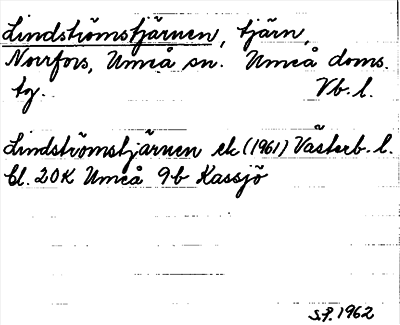 Lindströmstjärnen, tjärn,
Norrfors, Umeå sn. Umeå doms.
tg. Vb. l.
Lindströmstjärnen ek (1961) Västerb. l.
bl. 20K Umeå 9b Kassjö
S.P. 1962